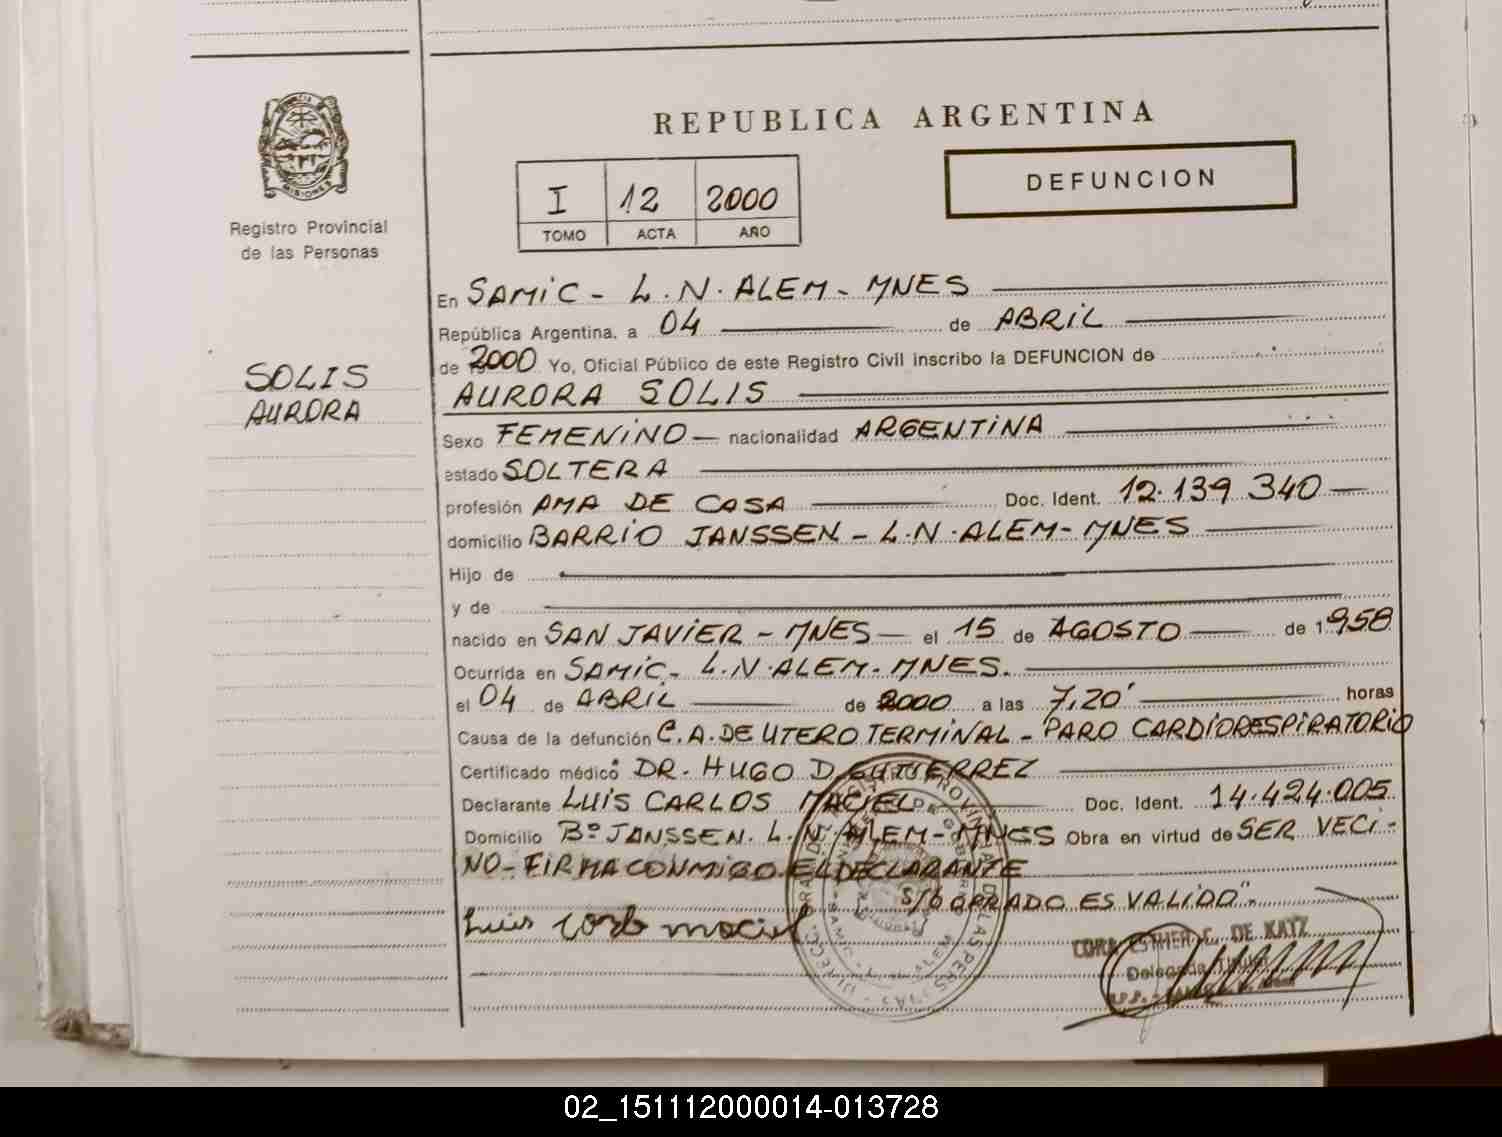 MISIONES
Registro Provincial
de las Personas
SOLIS
AURORA
REPUBLICA ARGENTINA
I 12 2000
TOMO ACTA AÑO
DEFUNCION
En SAMIC - L.N. ALEM - MNES
República Argentina, a 04 de ABRIL
de 2000 Yo, Oficial Público de este Registro Civil inscribo la DEFUNCION de
AURORA SOLIS
Sexo FEMENINO - nacionalidad ARGENTINA
estado SOLTERA
profesión AMA DE CASA Doc. Ident. 12.139.340
domicilio BARRIO JANSSEN - L.N. ALEM - MNES
Hijo de
y de
nacido en SAN JAVIER - MNES - el 15 de AGOSTO de 1958
Ocurrida en SAMIC - L.N. ALEM - MNES.
el 04 de ABRIL de 2000 a las 7,20' horas
Causa de la defunción C.A. DE UTERO TERMINAL - PARO CARDIORESPIRATORIO
Certificado médico DR. HUGO D. GUTIERREZ
Declarante LUIS CARLOS MACIEL Doc. Ident. 14.424.005
Domicilio Bº JANSSEN. L.N. ALEM - MNES Obra en virtud de SER VECI-
NO - FIRMA CONMIGO EL DECLARANTE
S/B OPRADO ES VALIDO".
Luis Carlos Maciel
CORA ESTHER C. DE KATZ
Delegada Titular
02_151112000014-013728